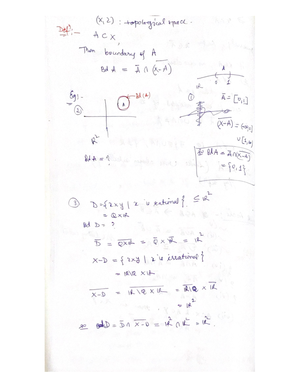 Defⁿ:- (X, τ) : topological space.
A ⊂ X,
Then boundary of A
Bd A = A̅ ∩ (X-A)̅
Eg:-
① A
( )
0 1
A̅ = [0,1]
(X-A)̅ = (-∞,0]
∪ [1,∞)
so Bd A = A̅ ∩ (X-A)̅
= {0,1}
② A → Bd(A)
ℝ²
Bd A = ?
③ D = {x×y | x is rational} ⊆ ℝ²
= ℚ×ℝ
Bd D = ?
D̅ = (ℚ×ℝ)̅ = ℚ̅ × ℝ̅ = ℝ²
X-D = {x×y | x is irrational}
= ℝ\ℚ × ℝ
(X-D)̅ = (ℝ\ℚ × ℝ)̅ = (ℝ\ℚ)̅ × ℝ̅
= ℝ²
so Bd D = D̅ ∩ (X-D)̅ = ℝ² ∩ ℝ² = ℝ².